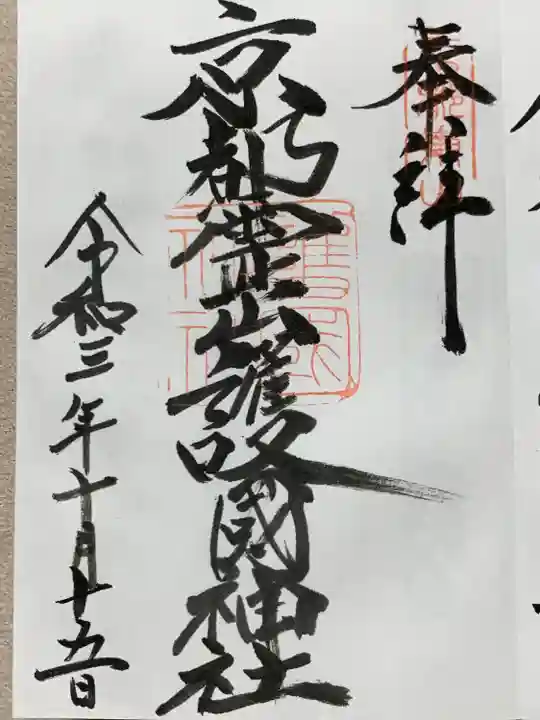 奉拜
京都霊山護國神社
令和三年十月十五日